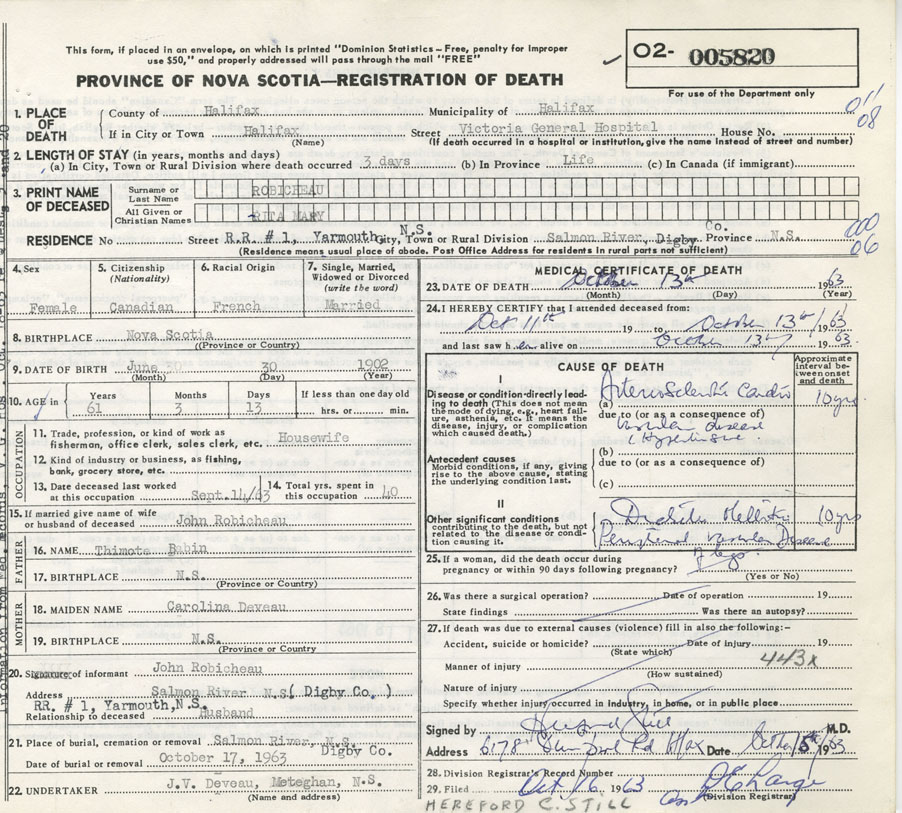 This form, if placed in an envelope, on which is printed "Dominion Statistics – Free, penalty for improper
use $50," and properly addressed will pass through the mail "FREE"
PROVINCE OF NOVA SCOTIA—REGISTRATION OF DEATH
02- 005820
For use of the Department only
011
08
1. PLACE OF DEATH
County of Halifax Municipality of Halifax
If in City or Town Halifax Street Victoria General Hospital House No.
(Name) (If death occurred in a hospital or institution, give the name instead of street and number)
2. LENGTH OF STAY (in years, months and days)
(a) In City, Town or Rural Division where death occurred 3 days (b) In Province Life (c) In Canada (if immigrant)
3. PRINT NAME OF DECEASED
Surname or Last Name ROBICHEAU
All Given or Christian Names RITA MARY
RESIDENCE No Street R.R. # 1, Yarmouth, N.S. City, Town or Rural Division Salmon River, Digby Co. Province N.S.
(Residence means usual place of abode. Post Office Address for residents in rural parts not sufficient)
06
4. Sex Female
5. Citizenship (Nationality) Canadian
6. Racial Origin French
7. Single, Married, Widowed or Divorced (write the word) Married
8. BIRTHPLACE Nova Scotia
(Province or Country)
9. DATE OF BIRTH June 30 30 1902
(Month) (Day) (Year)
10. AGE in Years 61 Months 3 Days 13 If less than one day old hrs. or min.
OCCUPATION
11. Trade, profession or kind of work as
fisherman, office clerk, sales clerk, etc. Housewife
12. Kind of industry or business, as fishing,
bank, grocery store, etc.
13. Date deceased last worked
at this occupation Sept. 14/63
14. Total yrs. spent in
this occupation 40
15. If married give name of wife
or husband of deceased John Robicheau
FATHER
16. NAME Thimote Babin
17. BIRTHPLACE N.S.
(Province or Country)
MOTHER
18. MAIDEN NAME Carolina Deveau
19. BIRTHPLACE N.S.
(Province or Country
20. Signature of informant John Robicheau
Address Salmon River N.S. ( Digby Co. )
RR. # 1, Yarmouth, N.S.
Relationship to deceased Husband
21. Place of burial, cremation or removal Salmon River, N.S.
Digby Co.
Date of burial or removal October 17, 1963
22. UNDERTAKER J.V. Deveau, Meteghan, N.S.
(Name and address)
MEDICAL CERTIFICATE OF DEATH
23. DATE OF DEATH October 13th 1963
(Month) (Day) (Year)
24. I HEREBY CERTIFY that I attended deceased from:
Oct 11th 19 to October 13th 1963
and last saw her alive on October 13th 1963
CAUSE OF DEATH
Approximate interval between onset and death
I
Disease or condition directly leading to death (This does not mean the mode of dying, e.g., heart failure, asthenia, etc. It means the disease, injury, or complication which caused death.)
(a) Arteriosclerotic Cardio 10 yrs
due to (or as a consequence of)
Vascular disease
Hypertensive
Antecedent causes
Morbid conditions, if any, giving rise to the above cause, stating the underlying condition last.
(b)
due to (or as a consequence of)
(c)
II
Other significant conditions
contributing to the death, but not related to the disease or condition causing it.
Diabetes Mellitus 10 yrs
Peripheral Vascular Disease
25. If a woman, did the death occur during
pregnancy or within 90 days following pregnancy?
(Yes or No)
26. Was there a surgical operation? Date of operation 19
State findings Was there an autopsy?
27. If death was due to external causes (violence) fill in also the following:–
Accident, suicide or homicide? Date of injury 19
(State which)
443x
Manner of injury
(How sustained)
Nature of injury
Specify whether injury occurred in Industry, in home, or in public place
Signed by Hereford Still M.D.
Address 6178 Rd Hfx Date 1963
28. Division Registrar's Record Number
29. Filed Oct 16 1963
(Division Registrar)
HEREFORD C. STILL